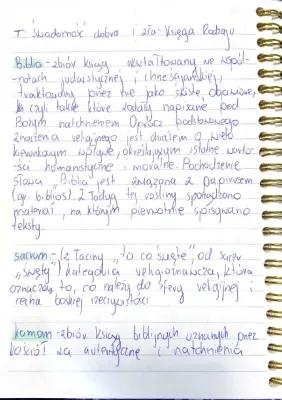 T: Świadomość dobra i zła - Księga Rodzaju
Biblia - zbiór ksiąg ukształtowany we wspól-
notach judaistycznej i chrześcijańskiej,
traktowany przez nie jako święte, objawione,
czyli takie które zostały napisane pod
Bożym natchnieniem. Oprócz podstawowego
znaczenia religijnego jest dziełem o wielo
kierunkowym wpływie, określającym istotne warto-
ści humanistyczne i moralne. Pochodzenie
słowa „Biblia" jest związana z papirusem
(gr. biblos). Z łodyg tej rośliny sporządzono
materiał, na którym pierwotnie spisywano
teksty.
sacrum - (z łaciny „to co święte", od sacer
„święty") kategoria religioznawcza, która
oznacza to, co należy do sfery religijnej i
cecha boskiej rzeczywistości
kanon - zbiór ksiąg biblijnych uznanych przez
kościół za autentyczne i natchnienia